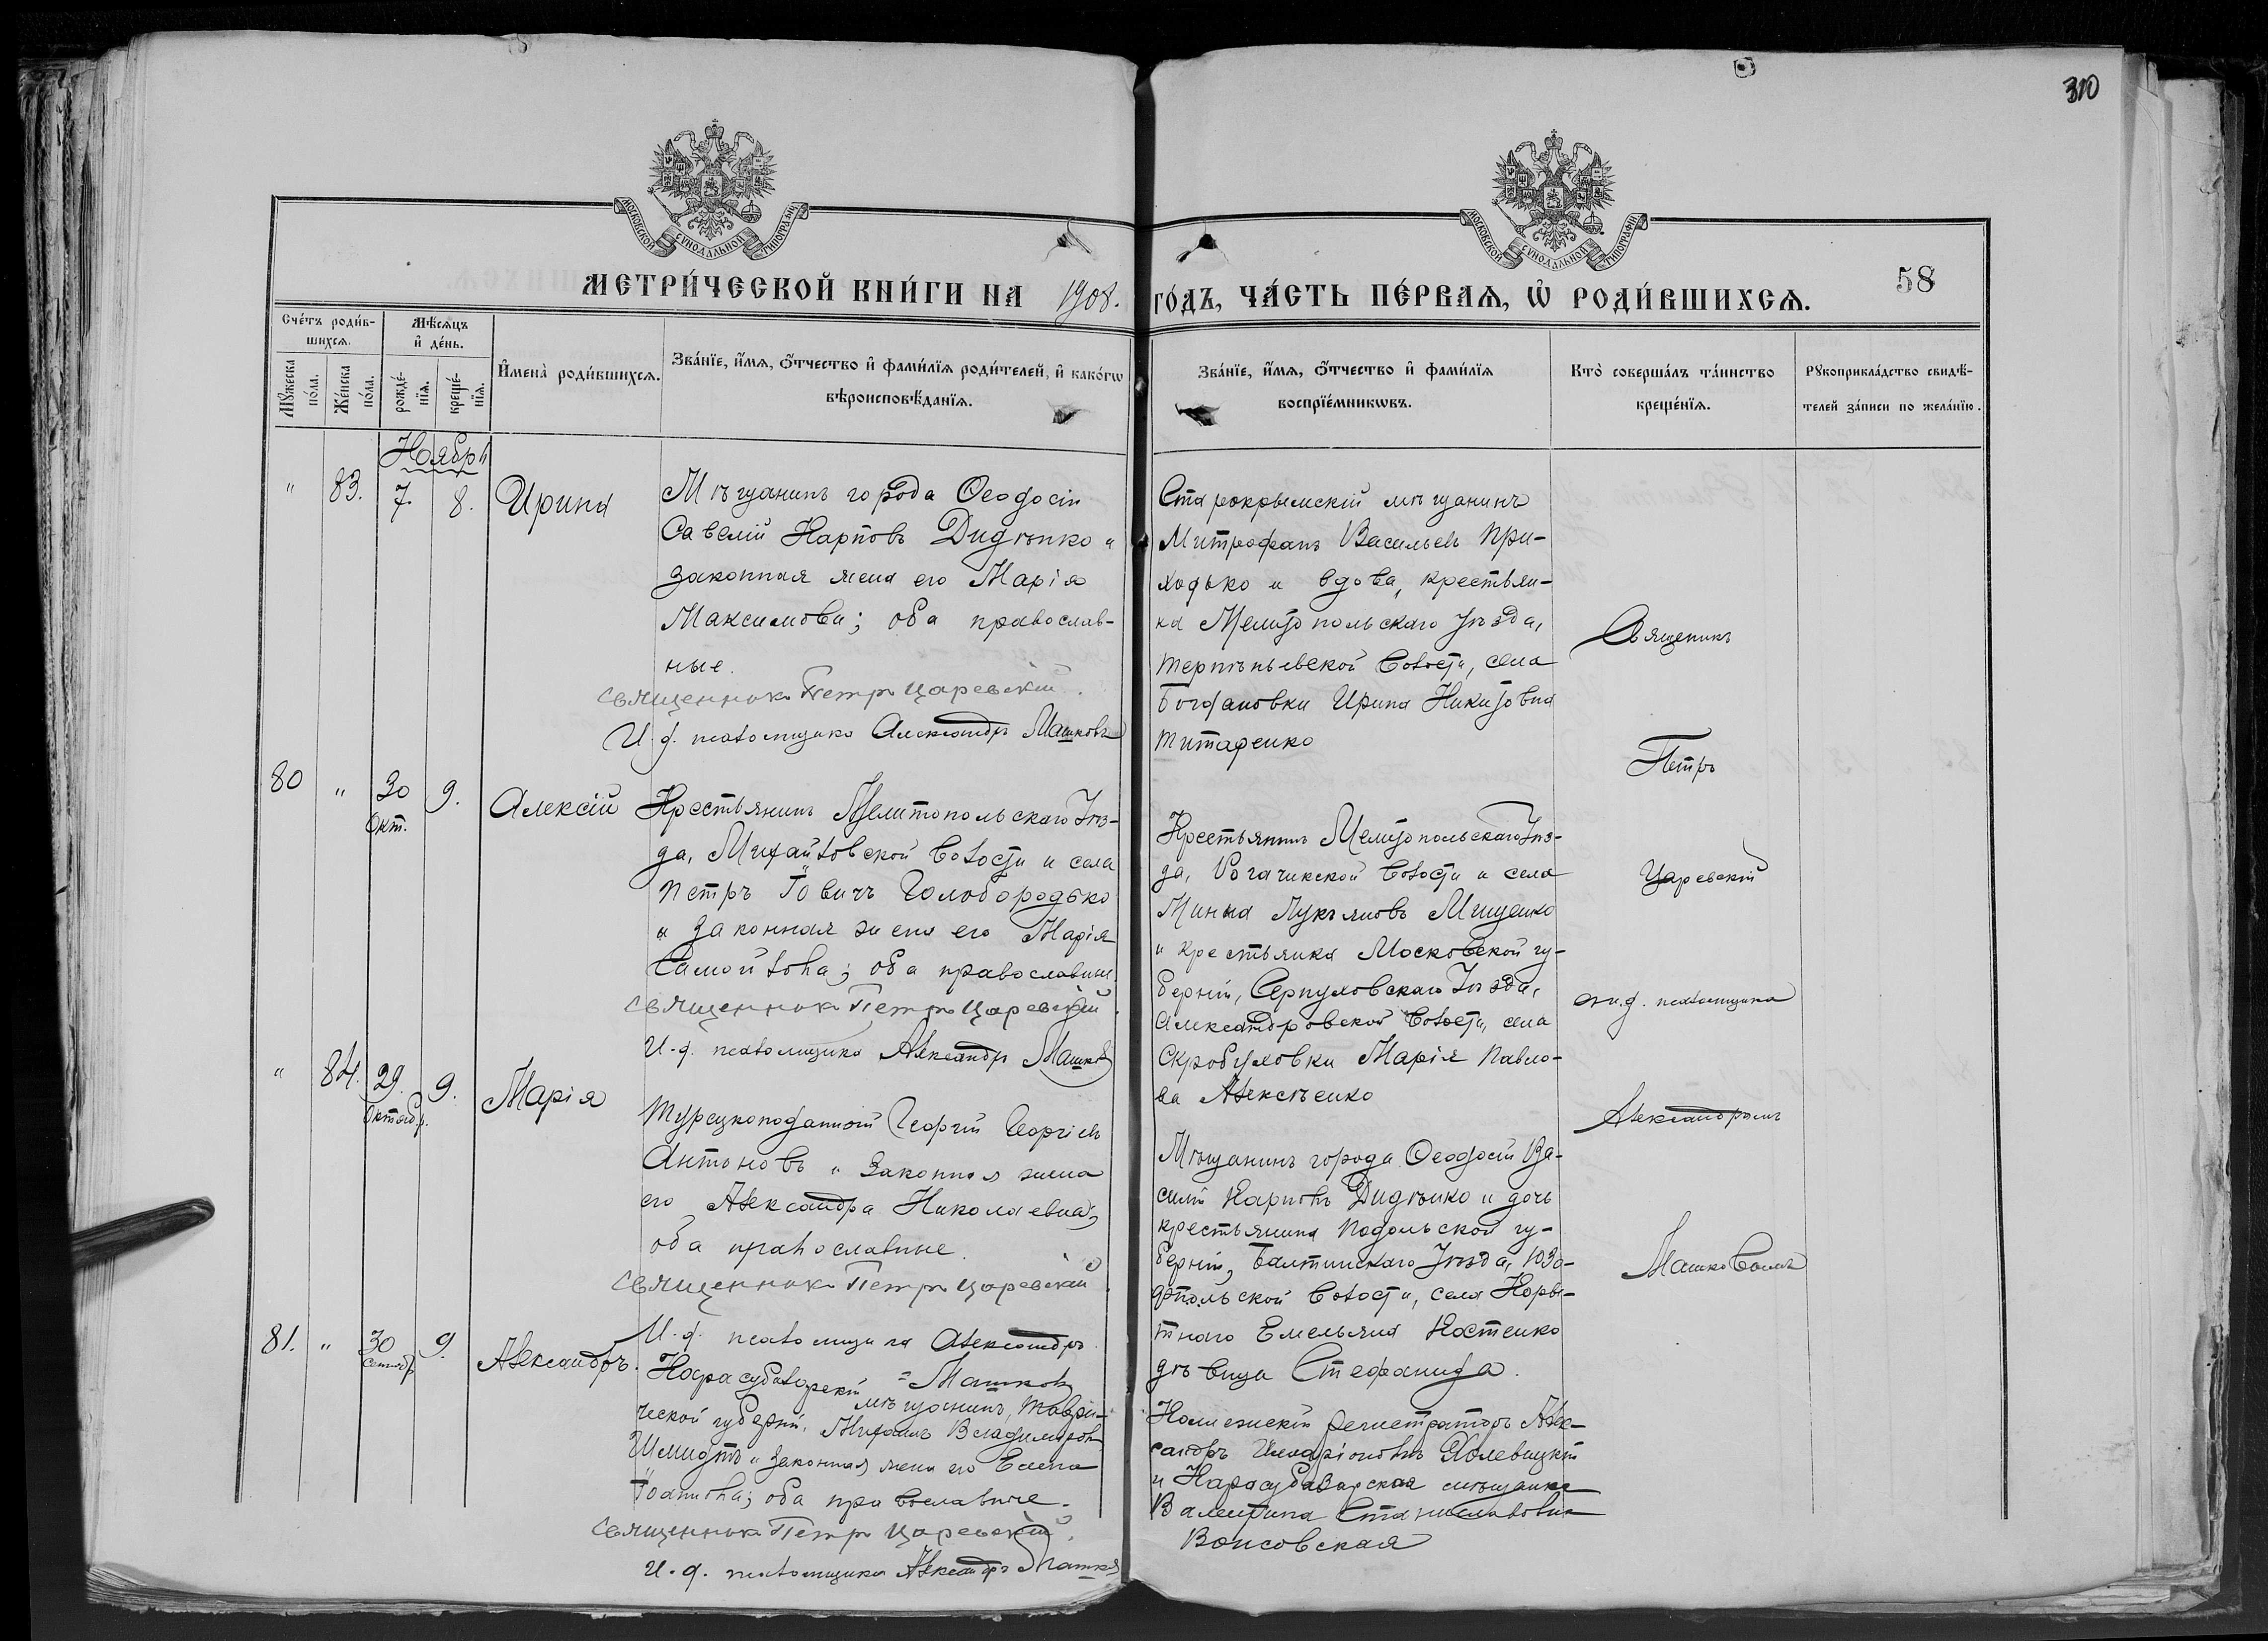 310
МОСКОВСКОЙ СУНОДАЛЬНОЙ ТИПОГРАФІИ
МОСКОВСКОЙ СУНОДАЛЬНОЙ ТИПОГРАФІИ
МЕТРИ́ЧЕСКОЙ КНИ́ГИ НА 1908. ГО́ДЪ, ЧА́СТЬ ПЕ́РВАѦ, Ѡ҆ РОДИ́ВШИХСѦ.
58
Сче́тъ роди́в-
шихсѧ.
Мꙋ́жеска по́ла.
Же́нска по́ла.
Мѣ́сѧцъ
и҆ де́нь.
рожде́-
нїѧ.
креще́-
нїѧ.
И҆мена̀ роди́вшихсѧ.
Зва́нїе, и҆́мѧ, ѻ҆́тчество и҆ фами́лїѧ роди́телей, и҆ како́гѡ
вѣроисповѣ́данїѧ.
Зва́нїе, и҆́мѧ, ѻ҆́тчество и҆ фами́лїѧ
воспрїе́мникѡвъ.
Кто̀ соверша́лъ та́инство
креще́нїѧ.
Рꙋкоприкла́дство свидѣ́-
телей за́писи по жела́нїю.
Ноябрь
" 83. 7. 8. Ирина
Мѣщанинъ города Ѳеодосіи
Савелій Карповъ Дидѣнко и
законная жена его Марія
Максимова; оба православ-
ные.
Священникъ Петръ Царевскій.
И. д. псаломщика Александръ Машковъ
Старокрымскій мѣщанинъ
Митрофанъ Васильевъ При-
ходько и вдова, крестьян-
ка Мелитопольскаго уѣзда,
Терпѣньевской волости, села
Богдановки Ирина Никитовна
Титаренко
80 " 30 9. Алексій
Окт.
Крестьянинъ Мелитопольскаго уѣз-
да, Михайловской волости и села
Петръ Іовичъ Голобородько
и законная жена его Марія
Самойлова; оба православные
Священникъ Петръ Царевскій.
И. д. псаломщика Александръ Машковъ
Крестьянинъ Мелитопольскаго уѣз-
да, Рогачикской волости и села
Минай Лукьяновъ Мищенко
и крестьянка Московской гу-
берніи, Серпуховскаго уѣзда,
Александровской волости, села
Скробуховки Марія Павло-
ва Алексѣенко
" 84. 29. 9. Марія
Октябр.
Турецкоподанный Георгій Георгіевъ
Антоновъ и законная жена
его Александра Николаевна;
оба православные.
Священникъ Петръ Царевскій.
И. д. псаломщика Александръ
Машковъ
Мѣщанинъ города Ѳеодосіи Ва-
силій Карповъ Дидѣнко и дочь
крестьянина Подольской гу-
берніи, Балтинскаго уѣзда,
волости, села
Емельяна Костенко
дѣвица Стефанида.
81. " 30 9. Александръ.
Сентябр
Карасубазарскій мѣщанинъ, Таври-
ческой губерніи, Михаилъ Владимировъ
Шмидтъ и законная жена его Елена
Іоаннова; оба православные.
Священникъ Петръ Царевскій.
И. д. псаломщика Александръ Машковъ
Коллежскій регистраторъ Алек-
сандръ Илларіоновъ
и Карасубазарская мѣщанка
Валентина Станиславовна
Вонсовская
Священникъ
Петръ
Царевскій
и. д. псаломщика
Александромъ
Машковымъ